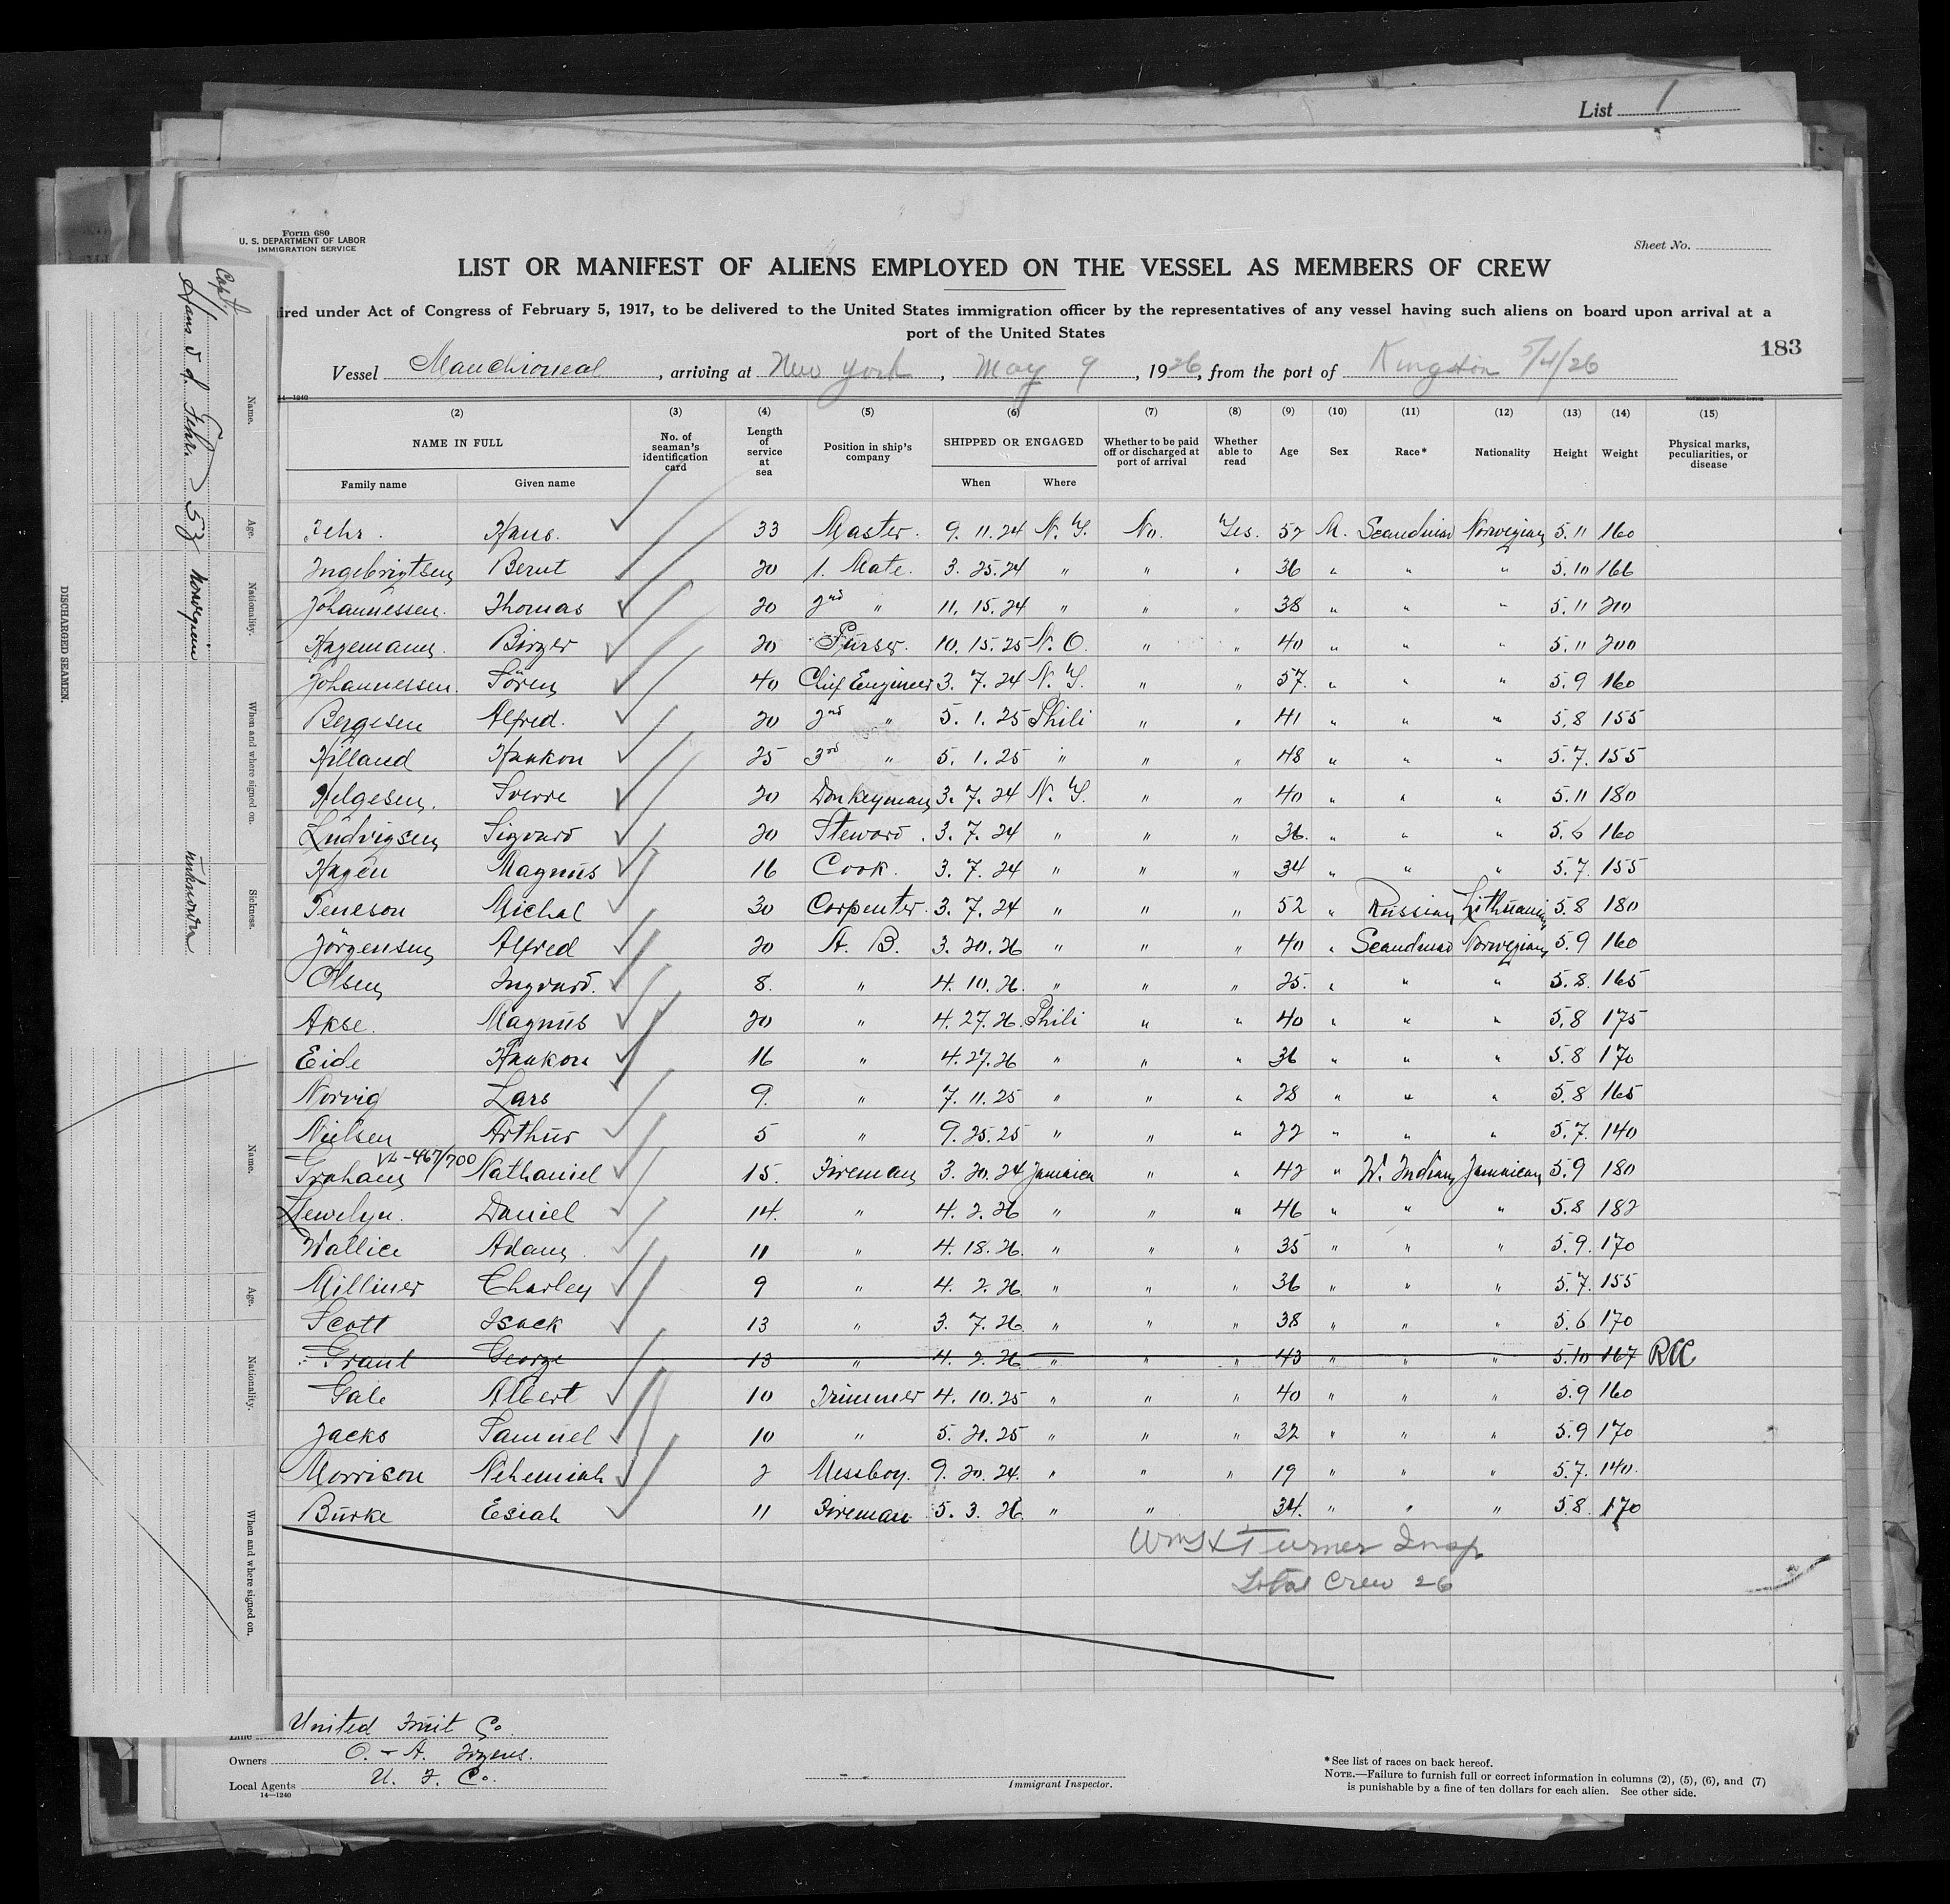 List 1
Form 680
U. S. DEPARTMENT OF LABOR
IMMIGRATION SERVICE
Sheet No.
LIST OR MANIFEST OF ALIENS EMPLOYED ON THE VESSEL AS MEMBERS OF CREW
ired under Act of Congress of February 5, 1917, to be delivered to the United States immigration officer by the representatives of any vessel having such aliens on board upon arrival at a
port of the United States
183
Vessel Manchioneal, arriving at New York, May 9, 1926, from the port of Kingston 5/4/26
14—1240
(2) (3) (4) (5) (6) (7) (8) (9) (10) (11) (12) (13) (14) (15)
NAME IN FULL No. of seaman's identification card Length of service at sea Position in ship's company SHIPPED OR ENGAGED Whether to be paid off or discharged at port of arrival Whether able to read Age Sex Race* Nationality Height Weight Physical marks, peculiarities, or disease
Family name Given name When Where
Fehr. Hans. 33 Master. 9. 11. 24 N. Y. No. Yes. 52 M. Scandinav Norwegian 5. 11 160
Ingebrigtsen Bernt 20 1. Mate. 3. 25. 24 " " " 36 " " " 5. 10 166
Johannessen. Thomas 20 2nd " 11. 15. 24 " " " 38 " " " 5. 11 210
Hagemann. Birger 20 Purser. 10. 15. 25 N. O. " " 40 " " " 5. 11 200
Johannessen. Sören 40 Chief Engineer 3. 7. 24 N. Y. " " 57. " " " 5. 9 160
Bergesen Alfred. 20 2nd " 5. 1. 25 Phili " " 41 " " " 5. 8 155
Hilland Haakon 25 3rd " 5. 1. 25 " " " 48 " " " 5. 7. 155
Helgesen. Sverre 20 Donkeyman 3. 7. 24 N. Y. " " 40 " " " 5. 11 180
Ludvigsen Sigvard 20 Steward. 3. 7. 24 " " " 36. " " " 5. 6 160
Hagen Magnus 16 Cook. 3. 7. 24 " " " 34 " " " 5. 7. 155
Teneson Michal 30 Carpenter. 3. 7. 24 " " " 52 " Russian Lithuania 5. 8 180
Jörgensen Alfred 20 A. B. 3. 20. 26 " " " 40 " Scandinav Norwegian 5. 9 160
Olsen Ingvard. 8. " 4. 10. 26. " " " 25. " " " 5. 8. 165
Akse. Magnus 20 " 4. 27. 26. Phili " " 40 " " " 5. 8 175
Eide Haakon 16 " 4. 27. 26 " " " 36 " " " 5. 8 170
Norvig Lars 9. " 7. 11. 25 " " " 28 " " " 5. 8 165
Nielsen Arthur 5 " 9. 25. 25 " " " 22 " " " 5. 7. 140
VL-467/700
Graham Nathaniel 15. Fireman 3. 20. 24 Jamaica " " 42 " W. Indian Jamaican 5. 9 180
Llewelyn. Daniel 14. " 4. 2. 26 " " " 46 " " " 5. 8 182
Wallice Adam 11 " 4. 18. 26. " " " 35 " " " 5. 9. 170
Milliner Charley 9 " 4. 2. 26 " " " 36 " " " 5. 7. 155
Scott Isack 13 " 3. 7. 26. " " " 38 " " " 5. 6 170
Grant George 13 " 4. 2. 26. " " " 43 " " " 5. 10 167
Gale Albert 10 Trimmer 4. 10. 25 " " " 40 " " " 5. 9 160
Jacks Samuel 10 " 5. 21. 25 " " " 32 " " " 5. 9 170
Morrison Nehemiah 2 Messboy. 9. 20. 24. " " " 19 " " " 5. 7. 140.
Burke Esiah 11 Fireman 5. 3. 26. " " 34. " " " 5. 8. 170
Turner Insp.
Total Crew 26
Line United Fruit Co.
Owners
Local Agents U. F. Co.
14—1240
Immigrant Inspector.
*See list of races on back hereof.
NOTE.—Failure to furnish full or correct information in columns (2), (5), (6), and (7)
is punishable by a fine of ten dollars for each alien. See other side.
DISCHARGED SEAMEN.
Name. Age. Nationality. When and where signed on. Sickness.
Capt.
Hans Fehr. 53 Norwegian unknown
Name. Age. Nationality. When and where signed on.